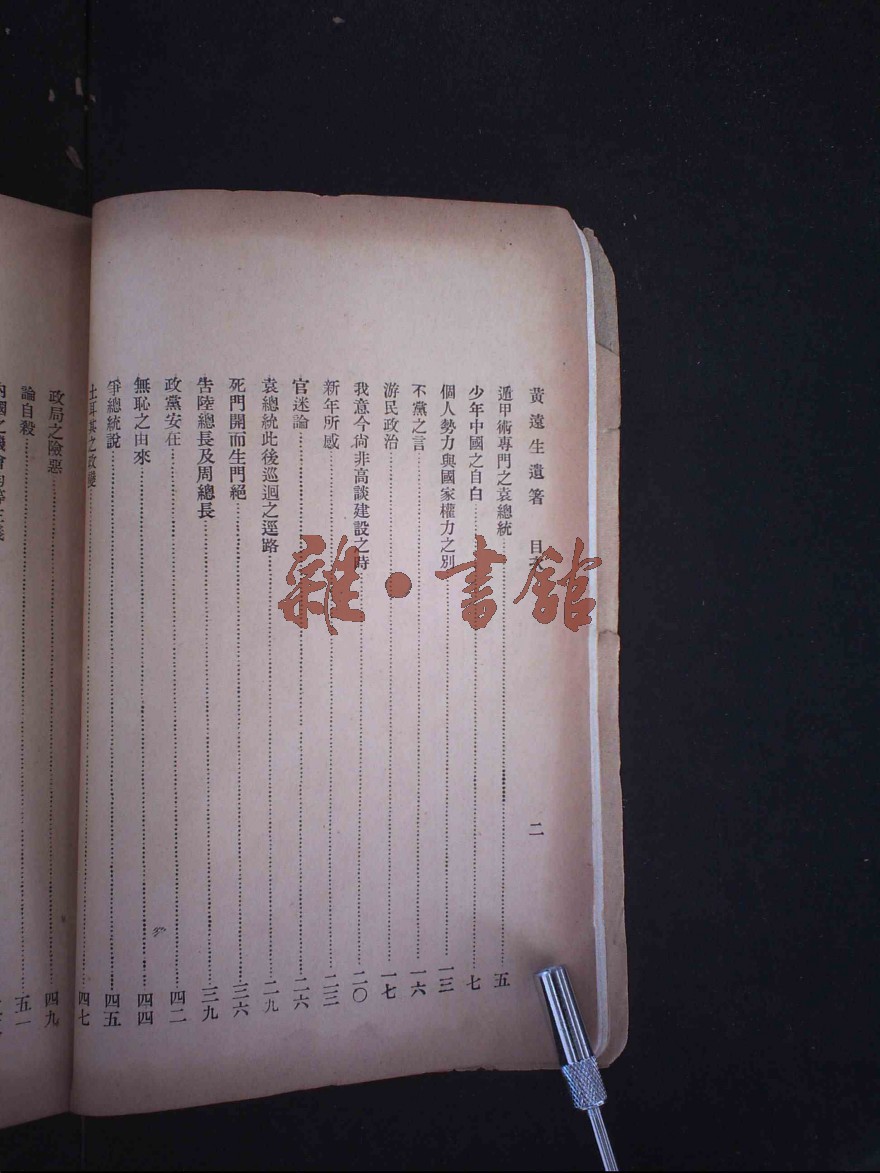 黃遠生遺著 目次 二
遁甲術專門之袁總統 五
少年中國之自白 七
個人勢力與國家權力之別 一三
不黨之言 一六
游民政治 一七
我意今尙非高談建設之時 二〇
新年所感 二三
官迷論 二六
袁總統此後巡迴之逕路 二九
死門開而生門絕 三六
吿陸總長及周總長 三九
政黨安在 四二
無恥之由來 四四
爭總統說 四五
土耳其之政變 四七
政局之險惡 四九
論自殺 五一
雜·書館